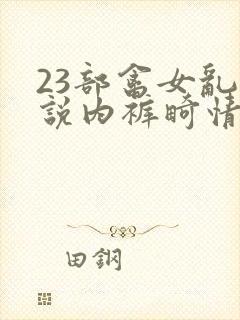 23部畲女乱
說内裤畸情
田鋼